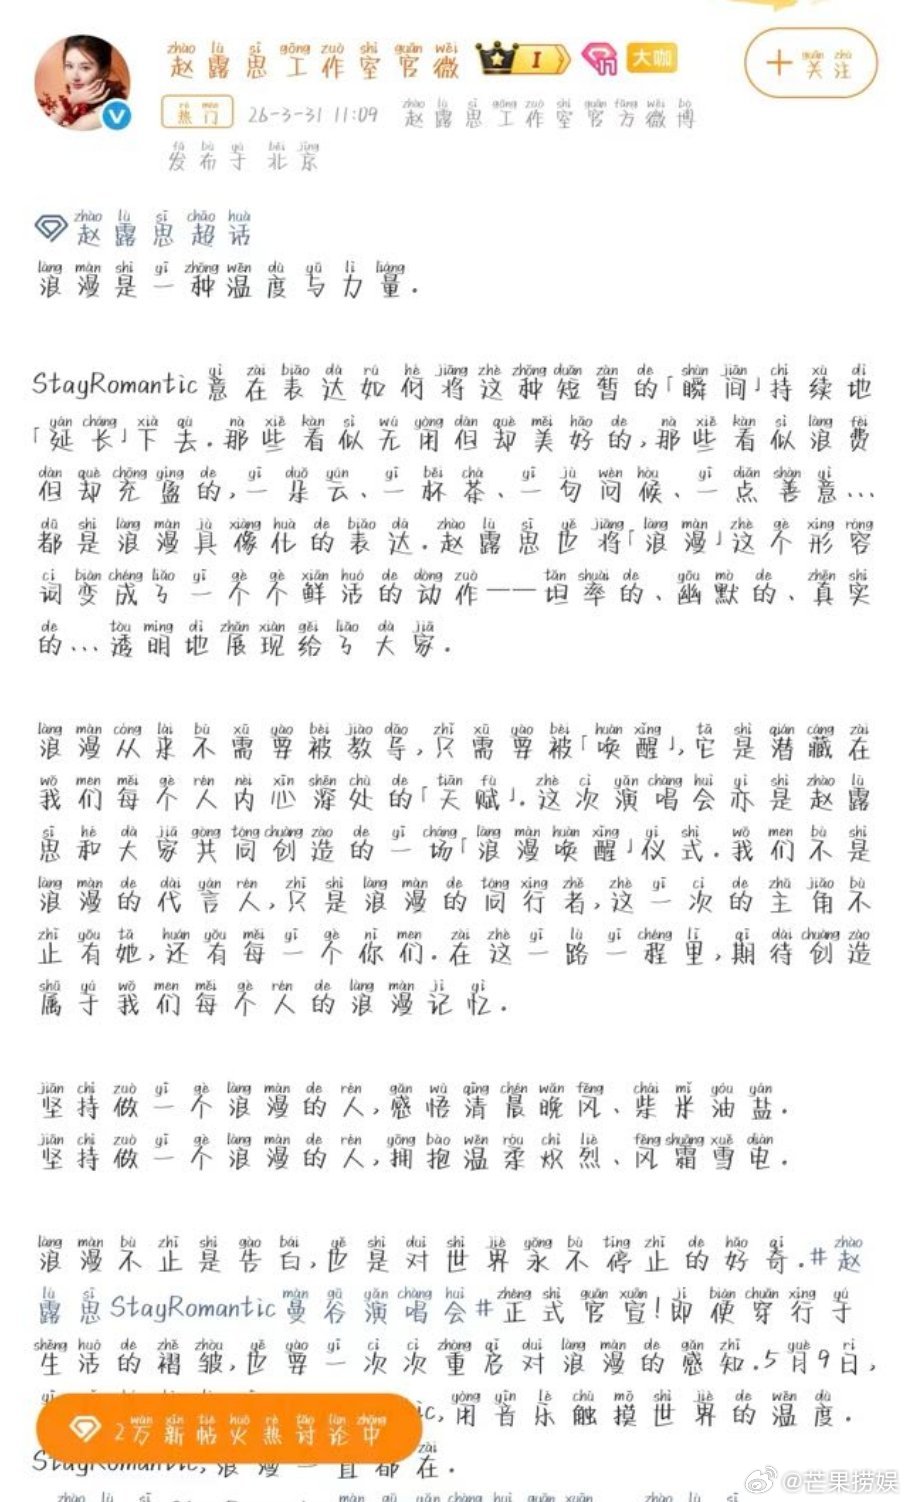 赵露思工作室官微 I 大咖 +关注
热门 26-3-31 11:09 赵露思工作室官方微博
发布于 北京
赵露思超话
浪漫是一种温度与力量.
StayRomantic意在表达如何将这种短暂的「瞬间」持续地
「延长」下去.那些看似无用但却美好的,那些看似浪费
但却充盈的,一朵云、一杯茶、一句问候、一点善意...
都是浪漫具像化的表达.赵露思也将「浪漫」这个形容
词变成了一个个鲜活的动作——坦率的、幽默的、真实
的...透明地展现给了大家.
浪漫从来不需要被教导,只需要被「唤醒」,它是潜藏在
我们每个人内心深处的「天赋」.这次演唱会亦是赵露
思和大家共同创造的一场「浪漫唤醒」仪式.我们不是
浪漫的代言人,只是浪漫的同行者,这一次的主角不
止有她,还有每一个你们.在这一路一程里,期待创造
属于我们每个人的浪漫记忆.
坚持做一个浪漫的人,感悟清晨晚风、柴米油盐.
坚持做一个浪漫的人,拥抱温柔炽烈、风霜雪电.
浪漫不止是告白,也是对世界永不停止的好奇.#赵
露思StayRomantic曼谷演唱会#正式官宣!即使穿行于
生活的褶皱,也要一次次重启对浪漫的感知.5月9日,
用音乐触摸世界的温度.
2万新帖火热讨论中
StayRomantic,浪漫一直都在.
@芒果捞娱